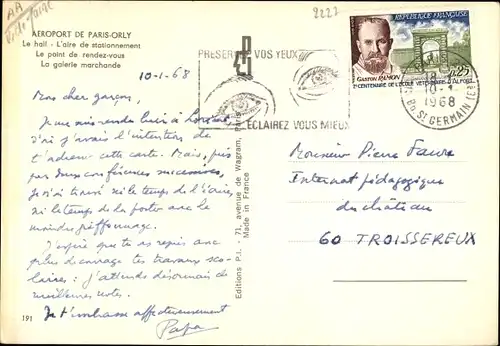 AÉROPORT DE PARIS-ORLY
Le hall - L'aire de stationnement
Le point de rendez-vous
La galerie marchande
10-1-68
Mon cher garçon,
Je me suis rendu hier à
j'ai j'avais l'intention de
t'adresser cette carte. Mais, pris
par deux conférences successives,
je n'ai trouvé ni le temps de l'écrire,
ni le temps de la poster avec le
moindre griffonnage.
J'espère que tu as repris avec
plus de courage tes travaux sco-
laires : j'attends désormais de
meilleures notes.
Je t'embrasse affectueusement
Papa
191
Editions P.I. - 71, avenue de Wagram, Paris
Made in France
2222
PRESERVEZ VOS YEUX
ECLAIREZ VOUS MIEUX
REPUBLIQUE FRANÇAISE
GASTON RAMON
2e CENTENAIRE DE L'ÉCOLE VÉTÉRINAIRE D'ALFORT
0,25
18
10-1
1968
Bd St GERMAIN
Monsieur Pierre Faure
Internat pédagogique
du château
60 TROISSEREUX